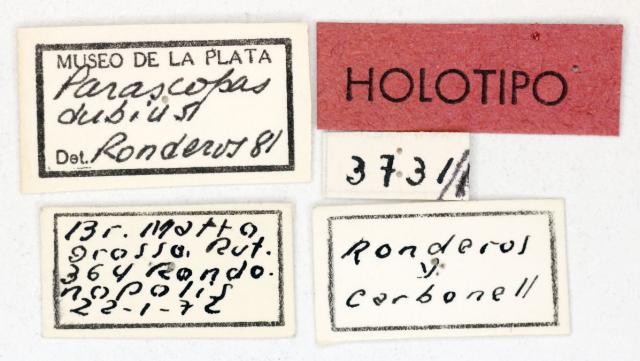 MUSEO DE LA PLATA
Parascopas
dubius
Det. Ronderos 81
HOLOTIPO
3731//
Br. Matto
Grosso. Rut.
364 Rondo.
nopolis
22-1-72
Ronderos
y
Carbonell